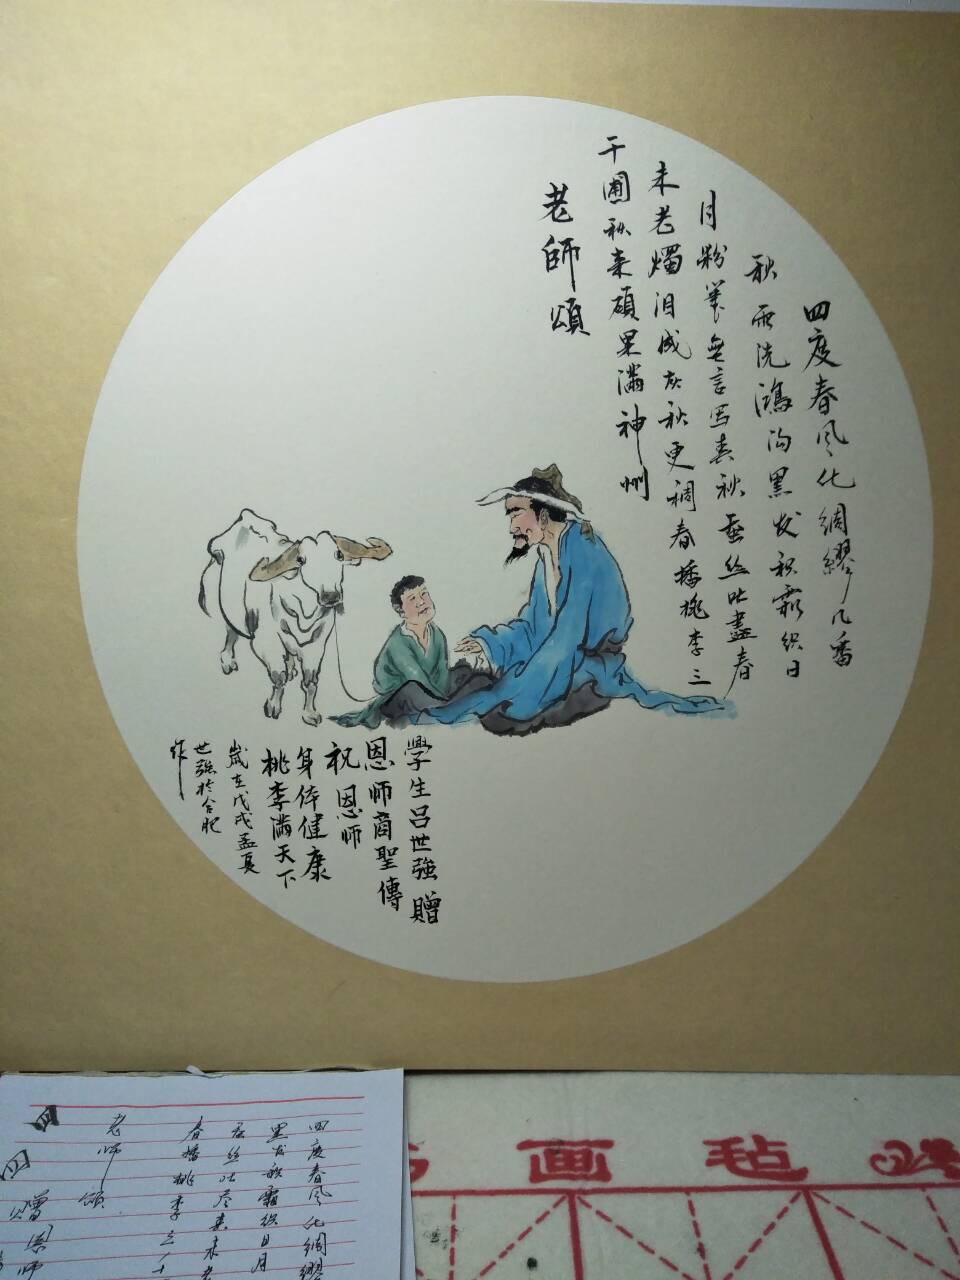 四度春风化绸缪几番
秋雨洗鴻沟黑发积霜织日
月粉筆無言写春秋蚕丝吐盡春
未老燭泪成灰秋更稠春播桃李三
千圃秋来碩果滿神州
老師頌
學生吕世強贈
恩师商聖傳
祝恩师
身体健康
桃李满天下
歲在戊戌孟夏
世强於合肥
作
四度春风化绸缪
黑发积霜织日月
蚕丝吐尽春未老
春播桃李三千
老师颂
赠恩师
画毡